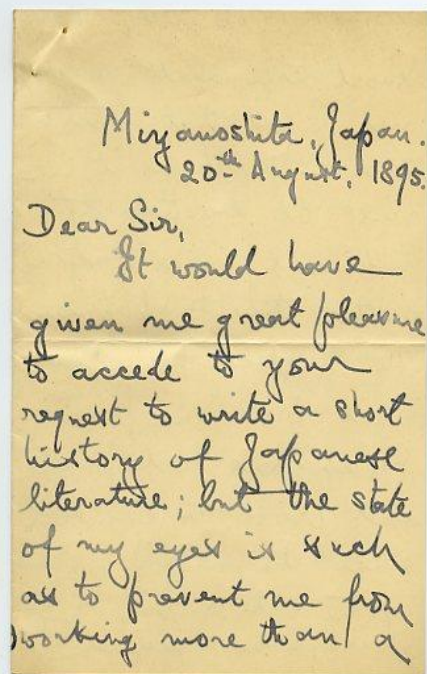 Miyanoshita, Japan.
20th August, 1895.
Dear Sir,
It would have
given me great pleasure
to accede to your
request to write a short
history of Japanese
literature; but the state
of my eyes is such
as to prevent me from
working more than a